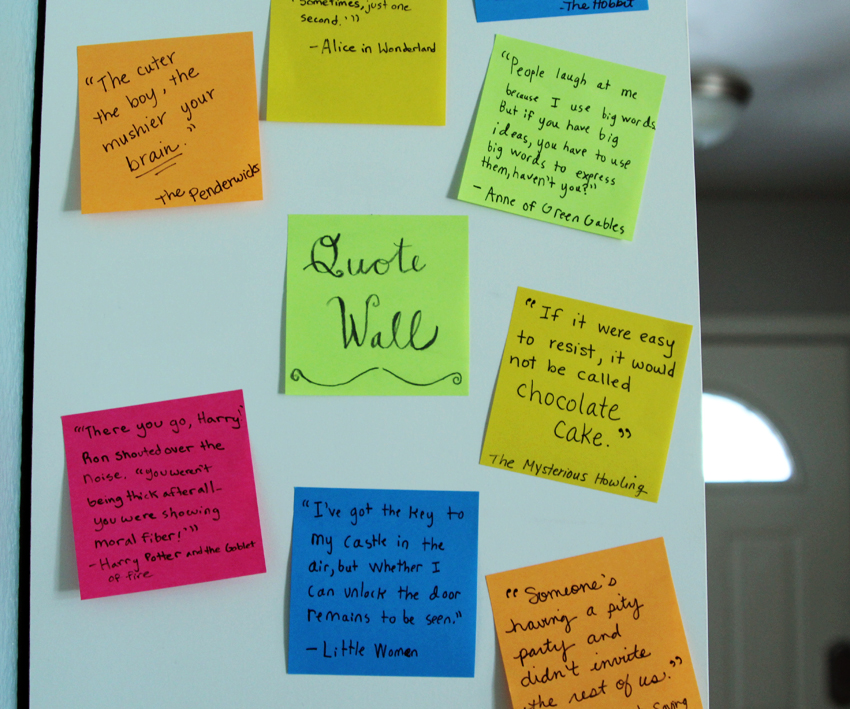 -The Hobbit
Sometimes, just one
second.'"
- Alice in Wonderland
"The cuter
the boy, the
mushier your
brain."
The Penderwicks
"People laugh at me
because I use big words.
But if you have big
ideas, you have to use
big words to express
them, haven't you?"
- Anne of Green Gables
Quote
Wall
"If it were easy
to resist, it would
not be called
chocolate
cake."
The Mysterious Howling
"'There you go, Harry!'
Ron shouted over the
noise. "you weren't
being thick after all-
you were showing
moral fiber!'"
- Harry Potter and the Goblet
of fire
"I've got the key to
my castle in the
air, but whether I
can unlock the door
remains to be seen."
- Little Women
"Someone's
having a pity
party and
didn't invite
the rest of us."